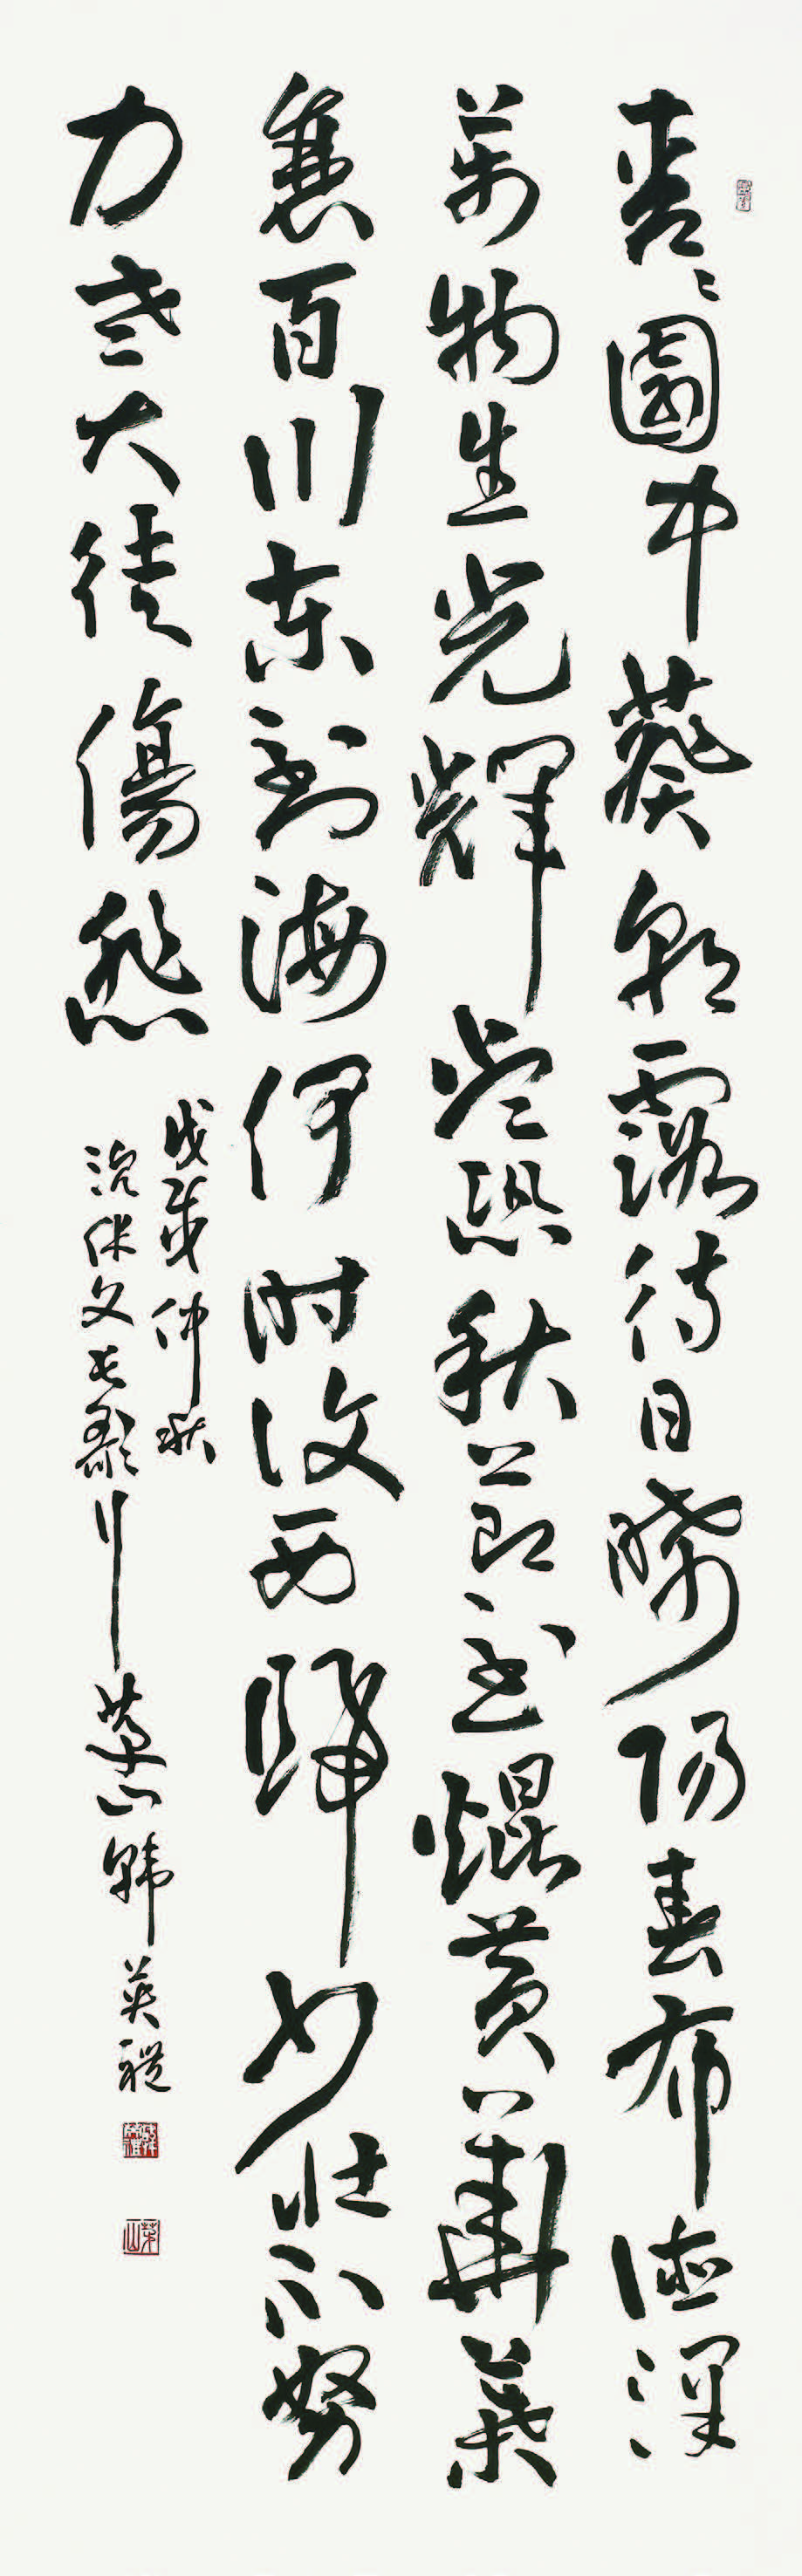 青〻園中葵朝露待日晞陽春布德澤
萬物生光輝常恐秋節至焜黃華葉
衰百川東到海何時復西歸少壯不努
力老大徒傷悲
戊戌仲秋
沈休文長歌行 山韓英